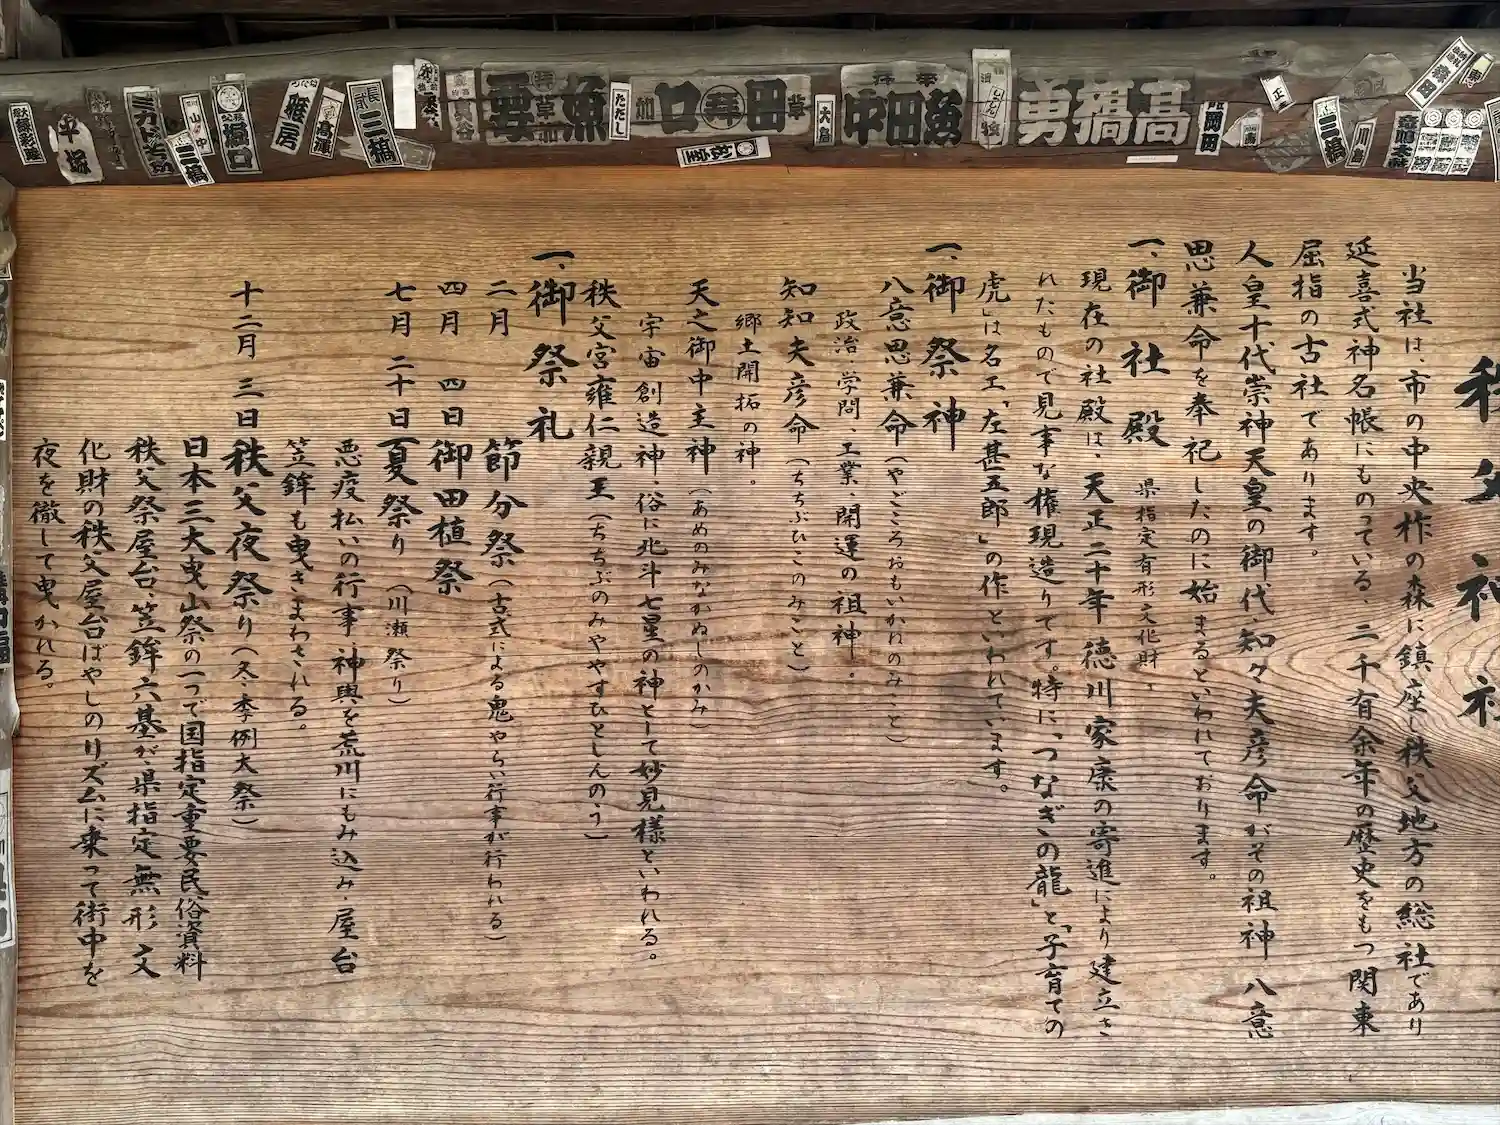 秩父神社
当社は、市の中央柞の森に鎮座し秩父地方の総社であり
延喜式神名帳にものっている、二千有余年の歴史をもつ関東
屈指の古社であります。
人皇十代崇神天皇の御代、知々夫彦命がその祖神 八意
思兼命を奉祀したのに始まるといわれております。
一、御社殿 県指定有形文化財、
現在の社殿は、天正二十年 徳川家康の寄進により建立さ
れたもので見事な権現造りです。特に「つなぎの龍」と「子育ての
虎」は名工「左甚五郎」の作といわれています。
一、御祭神
八意思兼命（やごころおもいかねのみこと）
政治、学問、工業、開運の祖神、
知知夫彦命（ちちぶひこのみこと）
郷土開拓の神。
天之御中主神（あめのみなかぬしのかみ）
宇宙創造神、俗に北斗七星の神として妙見様といわれる。
秩父宮雍仁親王（ちちぶのみややすひとしんのう）
一、御祭礼
二月 節分祭（古式による鬼やらい行事が行われる）
四月 四日 御田植祭
七月 二十日 夏祭り（川瀬祭り）
悪疫払いの行事、神輿を荒川にもみ込み、屋台
笠鉾も曳きまわされる。
十二月 三日 秩父夜祭り（冬季例大祭）
日本三大曳山祭の一つで国指定重要民俗資料
秩父祭屋台、笠鉾六基が、県指定無形文
化財の秩父屋台ばやしのリズムに乗って街中を
夜を徹して曳かれる。
高橋勇
魚田中
田口
ただし
大島
平塚
三橋
三橋
岡田
川島
橋口